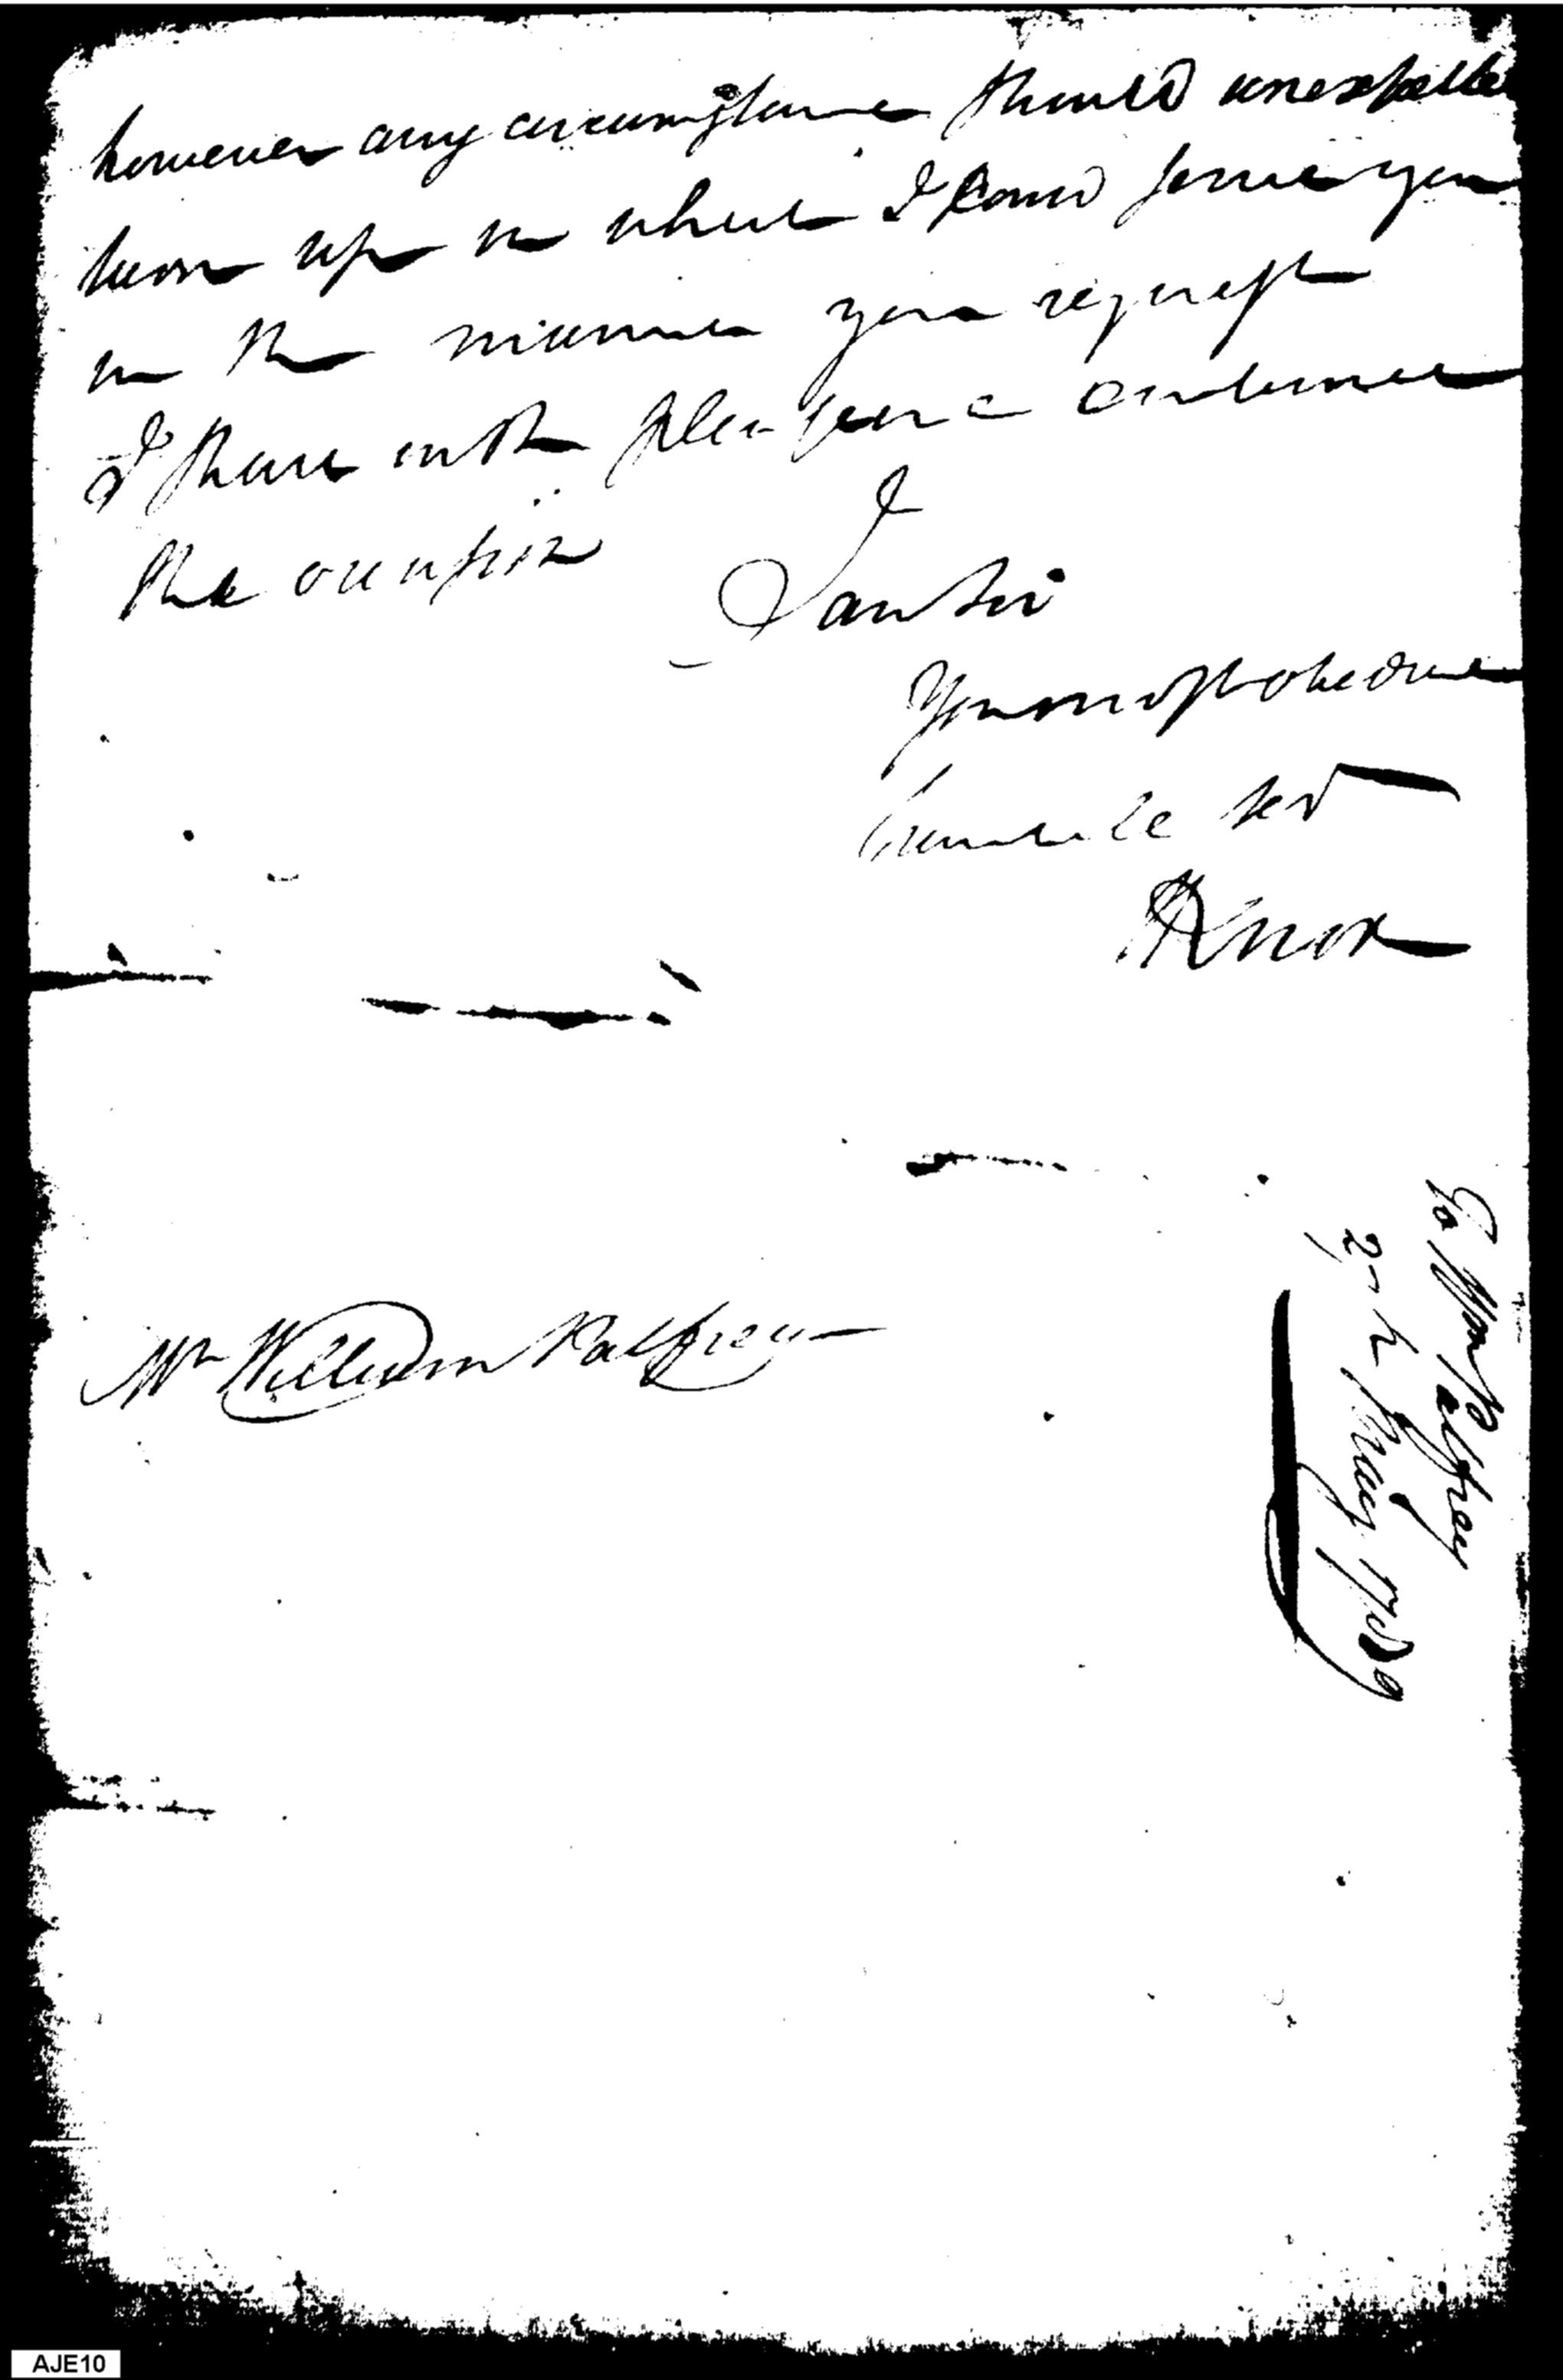 however any circumstance should unexpected
turn up in which I could serve you
in the manner you request
I shall with pleasure embrace
the occasion
I am Sir
Your most obedient
humble Serv
HKnox
Mr William Palfrey
To Wm Palfrey
24 May 1789
AJE10